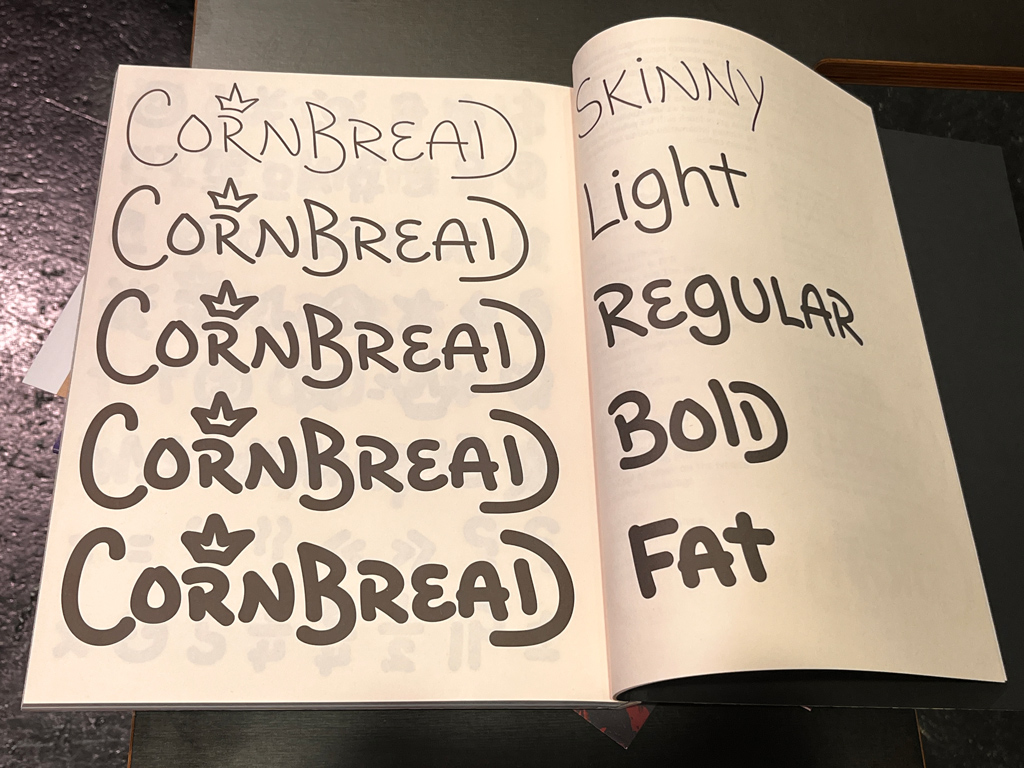 CORNBREAD
CORNBREAD
CORNBREAD
CORNBREAD
CORNBREAD
SKiNNY
Light
REgULAR
BolD
FAt